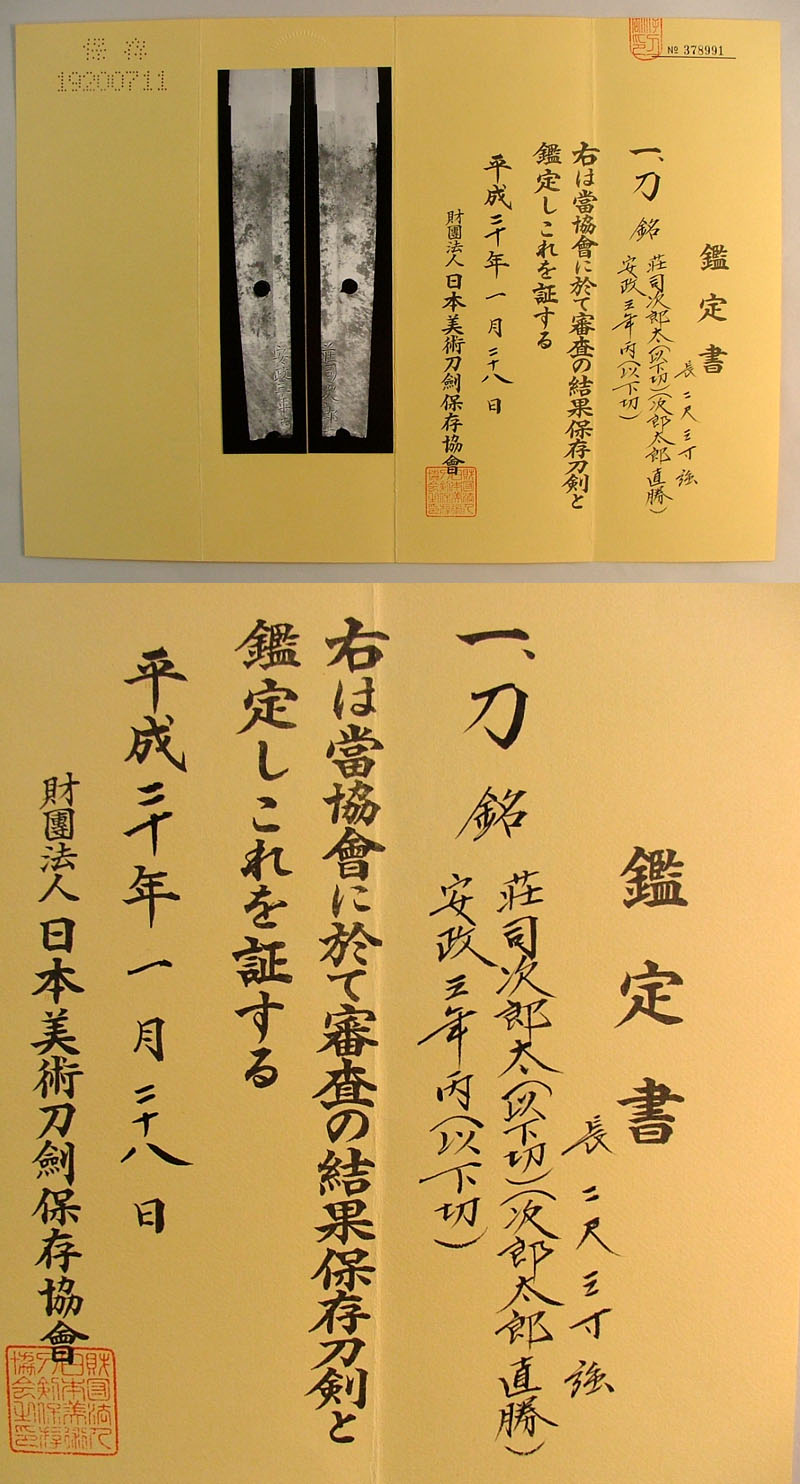 保存
19200711
№ 378991
鑑定書
長二尺三寸強
一、刀 銘 荘司次郎太(以下切)(次郎太郎直勝)
安政三年丙(以下切)
右は當協會に於て審査の結果保存刀剣と
鑑定しこれを証する
平成二十年一月二十八日
財團法人日本美術刀劍保存協會
荘司次郎
安政三年
鑑定書
長二尺三寸強
一、刀 銘 荘司次郎太(以下切)(次郎太郎直勝)
安政三年丙(以下切)
右は當協會に於て審査の結果保存刀剣と
鑑定しこれを証する
平成二十年一月二十八日
財團法人日本美術刀劍保存協會